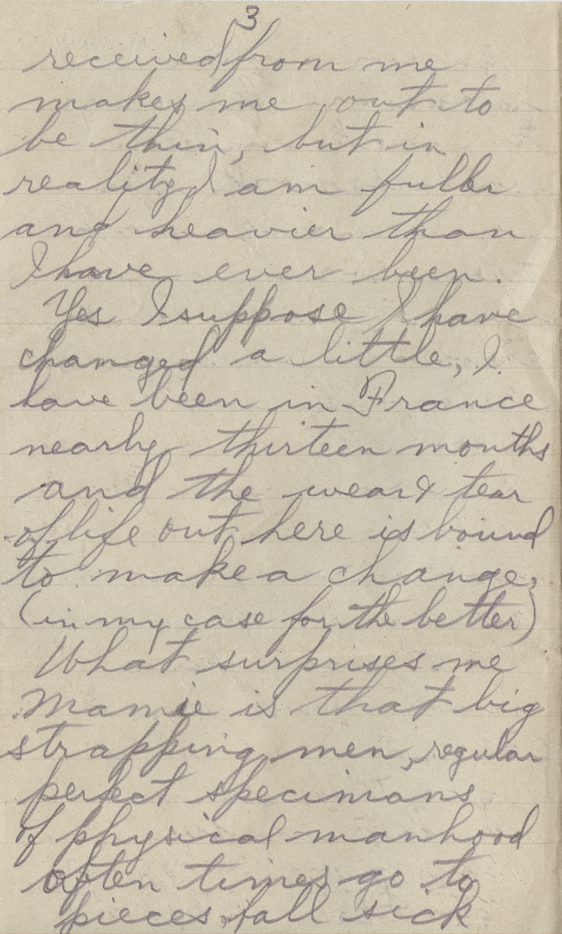 3
received from me
makes me out to
be thin, but in
reality I am fuller
and heavier than
I have ever been.
Yes I suppose I have
changed a little, I
have been in France
nearly thirteen months
and the wear & tear
of life out here is bound
to make a change,
(in my case for the better)
What surprises me
Mamie is that big
strapping men, regular
perfect specimans
of physical manhood
often times go to
pieces, fall sick